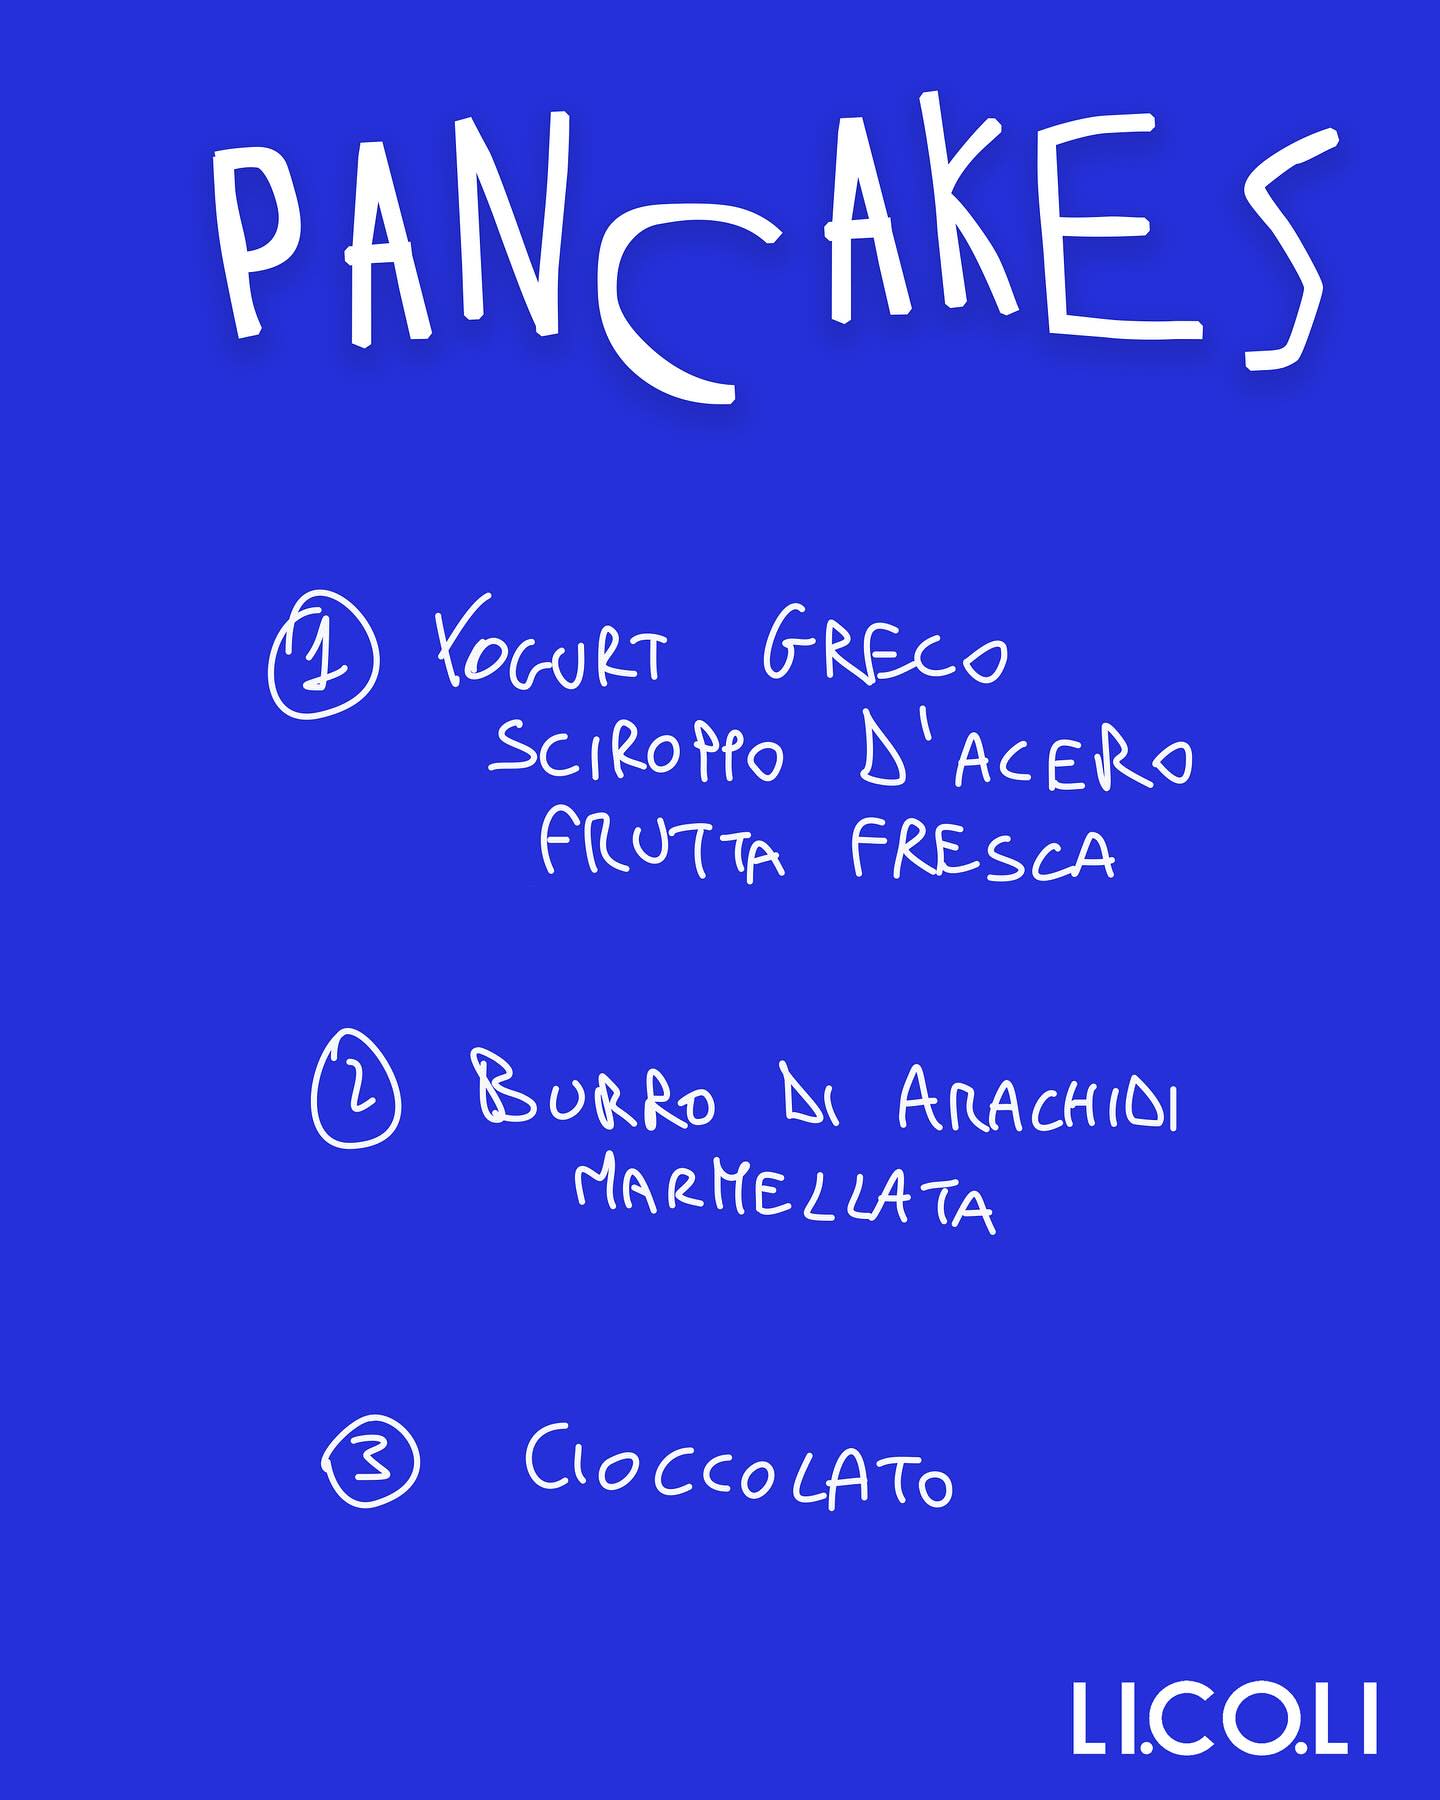 PANCAKES
1 YOGURT GRECO
SCIROPPO D'ACERO
FRUTTA FRESCA
2 BURRO DI ARACHIDI
MARMELLATA
3 CIOCCOLATO
LI.CO.LI